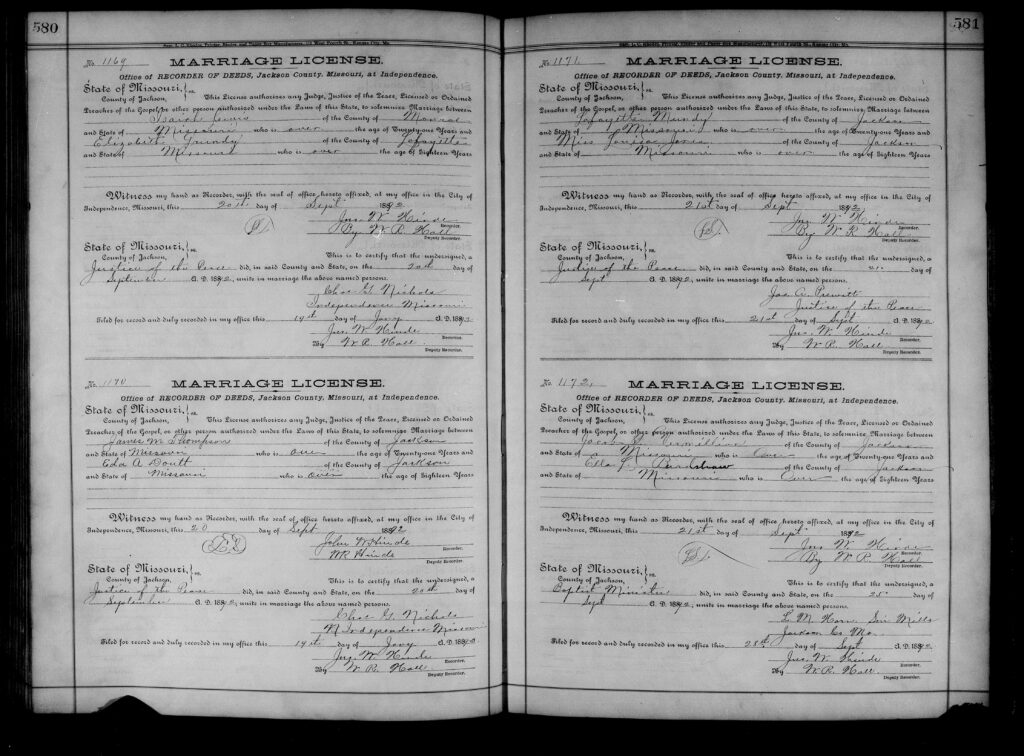 580
No. 1169
MARRIAGE LICENSE.
Office of RECORDER OF DEEDS, Jackson County, Missouri, at Independence.
State of Missouri, } ss.
County of Jackson, This License authorizes any Judge, Justice of the Peace, Licensed or Ordained
Preacher of the Gospel, or other person authorized under the Laws of this State, to solemnize Marriage between
Isaiah Lewis of the County of Monroe
and State of Missouri who is over the age of Twenty-one Years and
Elizabeth Grundy of the County of Lafayette
and State of Missouri who is over the age of Eighteen Years
Witness my hand as Recorder, with the seal of office hereto affixed, at my office in the City of
Independence, Missouri, this 20th day of Sept 1892
Jno. W. Hinde
Recorder.
By W. R. Hall
Deputy Recorder.
State of Missouri, } ss.
County of Jackson, This is to certify that the undersigned, a
Justice of the Peace did, in said County and State, on the 20th day of
September A. D. 1892, unite in marriage the above named persons.
Chas. G. Nichols
Independence Missouri
Filed for record and duly recorded in my office this 19th day of Jany A. D. 1893
Jno. W. Hinde
Recorder.
By W. R. Hall
Deputy Recorder.
No. 1170
MARRIAGE LICENSE.
Office of RECORDER OF DEEDS, Jackson County, Missouri, at Independence.
State of Missouri, } ss.
County of Jackson, This License authorizes any Judge, Justice of the Peace, Licensed or Ordained
Preacher of the Gospel, or other person authorized under the Laws of this State, to solemnize Marriage between
James M Thompson of the County of Jackson
and State of Missouri who is over the age of Twenty-one Years and
Eda A Doutt of the County of Jackson
and State of Missouri who is over the age of Eighteen Years
Witness my hand as Recorder, with the seal of office hereto affixed, at my office in the City of
Independence, Missouri, this 20 day of Sept 1892
John W Hinde
Recorder.
WR Hinde
Deputy Recorder.
State of Missouri, } ss.
County of Jackson, This is to certify that the undersigned, a
Justice of the Peace did, in said County and State, on the 20th day of
September A. D. 1892, unite in marriage the above named persons.
Chas G. Nichols
Independence Missouri
Filed for record and duly recorded in my office this 19th day of Jany A. D. 1893
Jno. W. Hinde
Recorder.
By W. R. Hall
Deputy Recorder.
581
No. 1171
MARRIAGE LICENSE.
Office of RECORDER OF DEEDS, Jackson County, Missouri, at Independence.
State of Missouri, } ss.
County of Jackson, This License authorizes any Judge, Justice of the Peace, Licensed or Ordained
Preacher of the Gospel, or other person authorized under the Laws of this State, to solemnize Marriage between
Lafayette Mundy of the County of Jackson
and State of Missouri who is over the age of Twenty-one Years and
Miss Louisa Jones of the County of Jackson
and State of Missouri who is over the age of Eighteen Years
Witness my hand as Recorder, with the seal of office hereto affixed, at my office in the City of
Independence, Missouri, this 21st day of Sept 1892
Jno. W Hinde
Recorder.
By W R Hall
Deputy Recorder.
State of Missouri, } ss.
County of Jackson, This is to certify that the undersigned, a
Justice of the Peace did, in said County and State, on the 21st day of
Sept A. D. 1892, unite in marriage the above named persons.
Jas. A. Prewitt
Justice of the Peace
Filed for record and duly recorded in my office this 21st day of Sept A. D. 1892
Jno. W. Hinde
Recorder.
By W. R. Hall
Deputy Recorder.
No. 1172
MARRIAGE LICENSE.
Office of RECORDER OF DEEDS, Jackson County, Missouri, at Independence.
State of Missouri, } ss.
County of Jackson, This License authorizes any Judge, Justice of the Peace, Licensed or Ordained
Preacher of the Gospel, or other person authorized under the Laws of this State, to solemnize Marriage between
of the County of Jackson
and State of Missouri who is Over the age of Twenty-one Years and
Ella of the County of Jackson
and State of Missouri who is Over the age of Eighteen Years
Witness my hand as Recorder, with the seal of office hereto affixed, at my office in the City of
Independence, Missouri, this 21st day of Sept 1892
Jno W. Hinde
Recorder.
By W. R. Hall
Deputy Recorder.
State of Missouri, } ss.
County of Jackson, This is to certify that the undersigned, a
Baptist Minister did, in said County and State, on the 25 day of
Sept A. D. 1892, unite in marriage the above named persons.
L. M. Horn
Jackson Co Mo.
Filed for record and duly recorded in my office this 28th day of Sept A. D. 1892
Jno. W. Hinde
Recorder.
By W. R. Hall
Deputy Recorder.